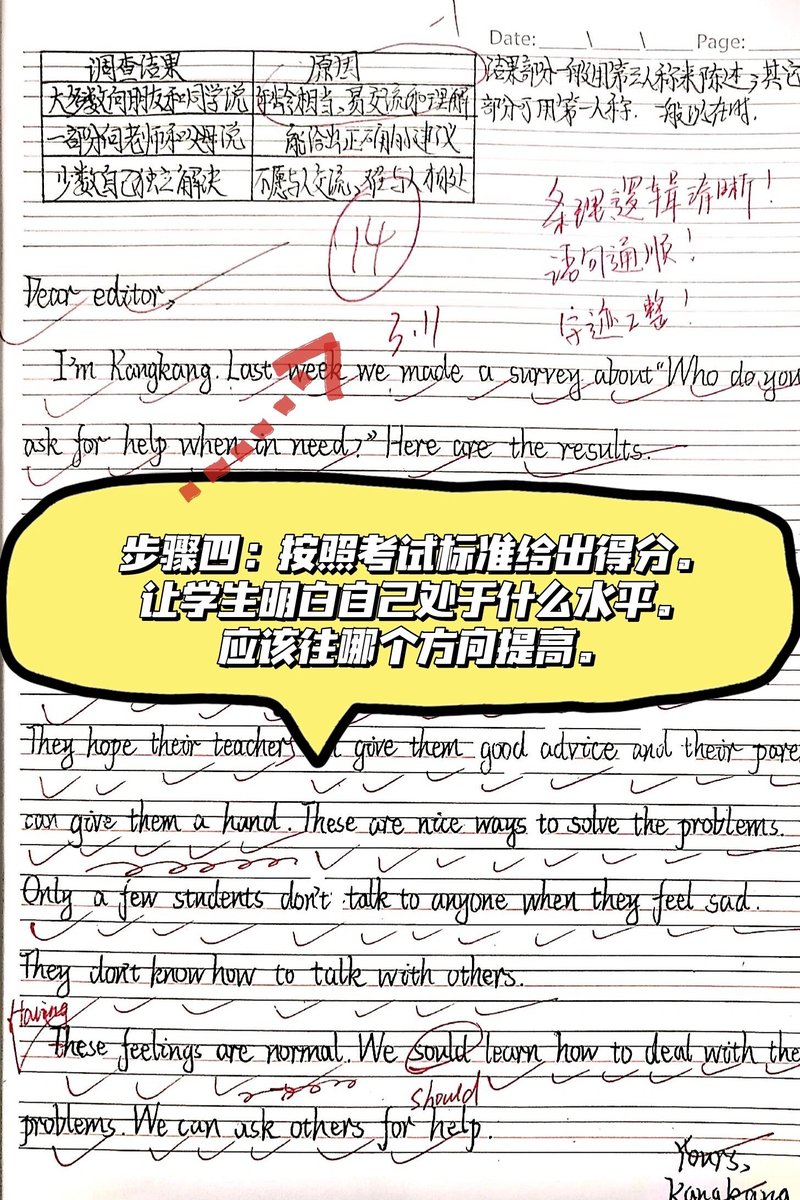 Date: Page:
调查结果 原因
大多数向朋友和同学说 年龄相当,易交流和理解
一部分向老师和父母说 能给出正确的建议
少数自己独立解决 不愿与人交流,难与人相处
结果部分一般用第三人称来陈述,其它
部分可用第一人称. 一般现在时.
条理逻辑清晰!
语句通顺!
字迹工整!
14
3.11
Dear editor,
I'm Kangkang. Last week we made a survey about "Who do you
ask for help when in need?" Here are the results.
步骤四:按照考试标准给出得分。
让学生明白自己处于什么水平。
应该往哪个方向提高。
They hope their teachers give them good advice and their pare
can give them a hand. These are nice ways to solve the problems.
Only a few students don't talk to anyone when they feel sad.
They don't know how to talk with others.
Having
These feelings are normal. We sould learn how to deal with the
should
problems. We can ask others for help.
Yours,
Kangkang